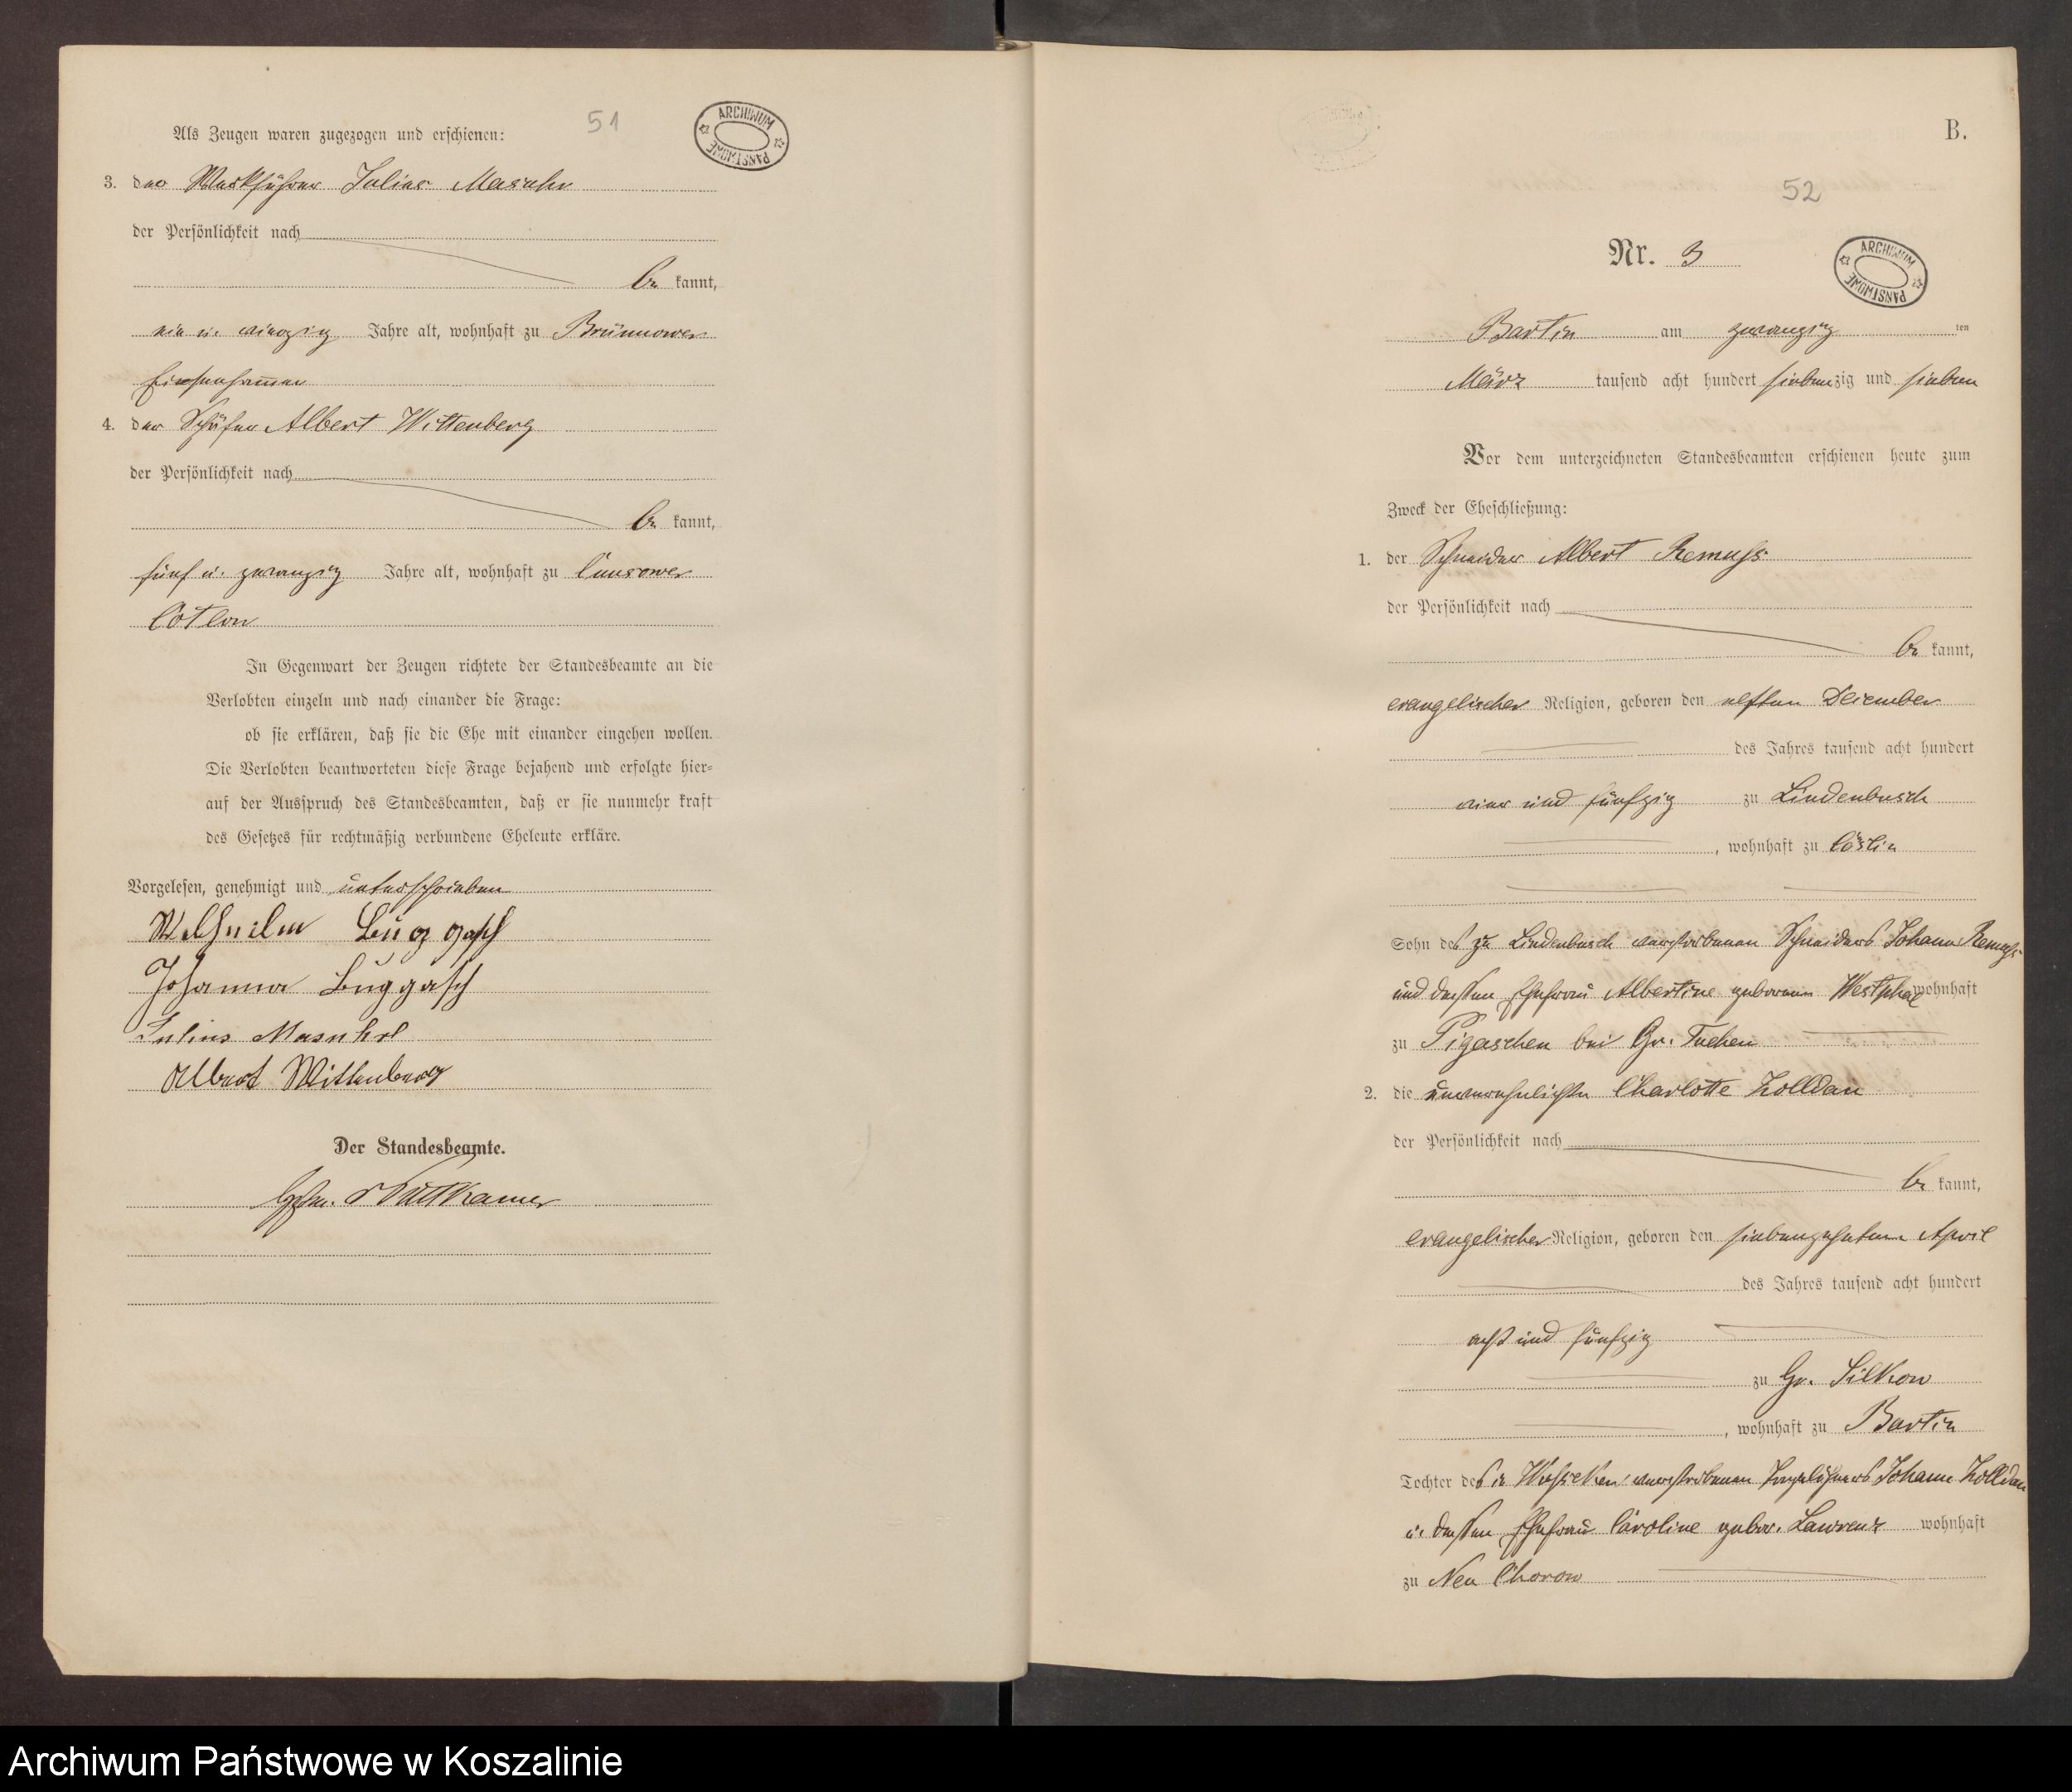 51
ARCHIWUM PAŃSTWOWE
Als Zeugen waren zugezogen und erschienen:
3. der Werkführer Julius Masuhr
der Persönlichkeit nach
be kannt,
ein u. vierzig Jahre alt, wohnhaft zu Brünnower
Eisenhammer
4. der Schäfer Albert Wittenberg
der Persönlichkeit nach
be kannt,
fünf u. zwanzig Jahre alt, wohnhaft zu
In Gegenwart der Zeugen richtete der Standesbeamte an die
Verlobten einzeln und nach einander die Frage:
ob sie erklären, daß sie die Ehe mit einander eingehen wollen.
Die Verlobten beantworteten diese Frage bejahend und erfolgte hier-
auf der Ausspruch des Standesbeamten, daß er sie nunmehr kraft
des Gesetzes für rechtmäßig verbundene Eheleute erkläre.
Vorgelesen, genehmigt und unterschrieben
Buggasch
Johanna Buggasch
Julius Masuhr
Albert Wittenberg
Der Standesbeamte.
Puttkamer
B.
52
Nr. 3
ARCHIWUM PAŃSTWOWE
Bartin am zwanzig ten
März tausend acht hundert siebenzig und sieben
Vor dem unterzeichneten Standesbeamten erschienen heute zum
Zweck der Eheschließung:
1. der Schneider Albert Remuss
der Persönlichkeit nach
be kannt,
evangelischer Religion, geboren den elften December
des Jahres tausend acht hundert
einer und fünfzig zu Lindenbusch
, wohnhaft zu Cöslin
Sohn des zu Lindenbusch verstorbenen Schneiders Johann Remuss
und dessen Ehefrau Albertine geborenen Westphal wohnhaft
zu Pigaschen bei Gr. Tuchen
2. die unverehelichte Charlotte Zolldan
der Persönlichkeit nach
be kannt,
evangelischer Religion, geboren den siebenzehnten April
des Jahres tausend acht hundert
acht und fünfzig
zu Gr. Silkow
, wohnhaft zu Bartin
Tochter des in verstorbenen Tagelöhners Johann Zolldan
u. dessen Ehefrau Caroline gebor. Lawrenz wohnhaft
zu Neu Chorow
Archiwum Państwowe w Koszalinie